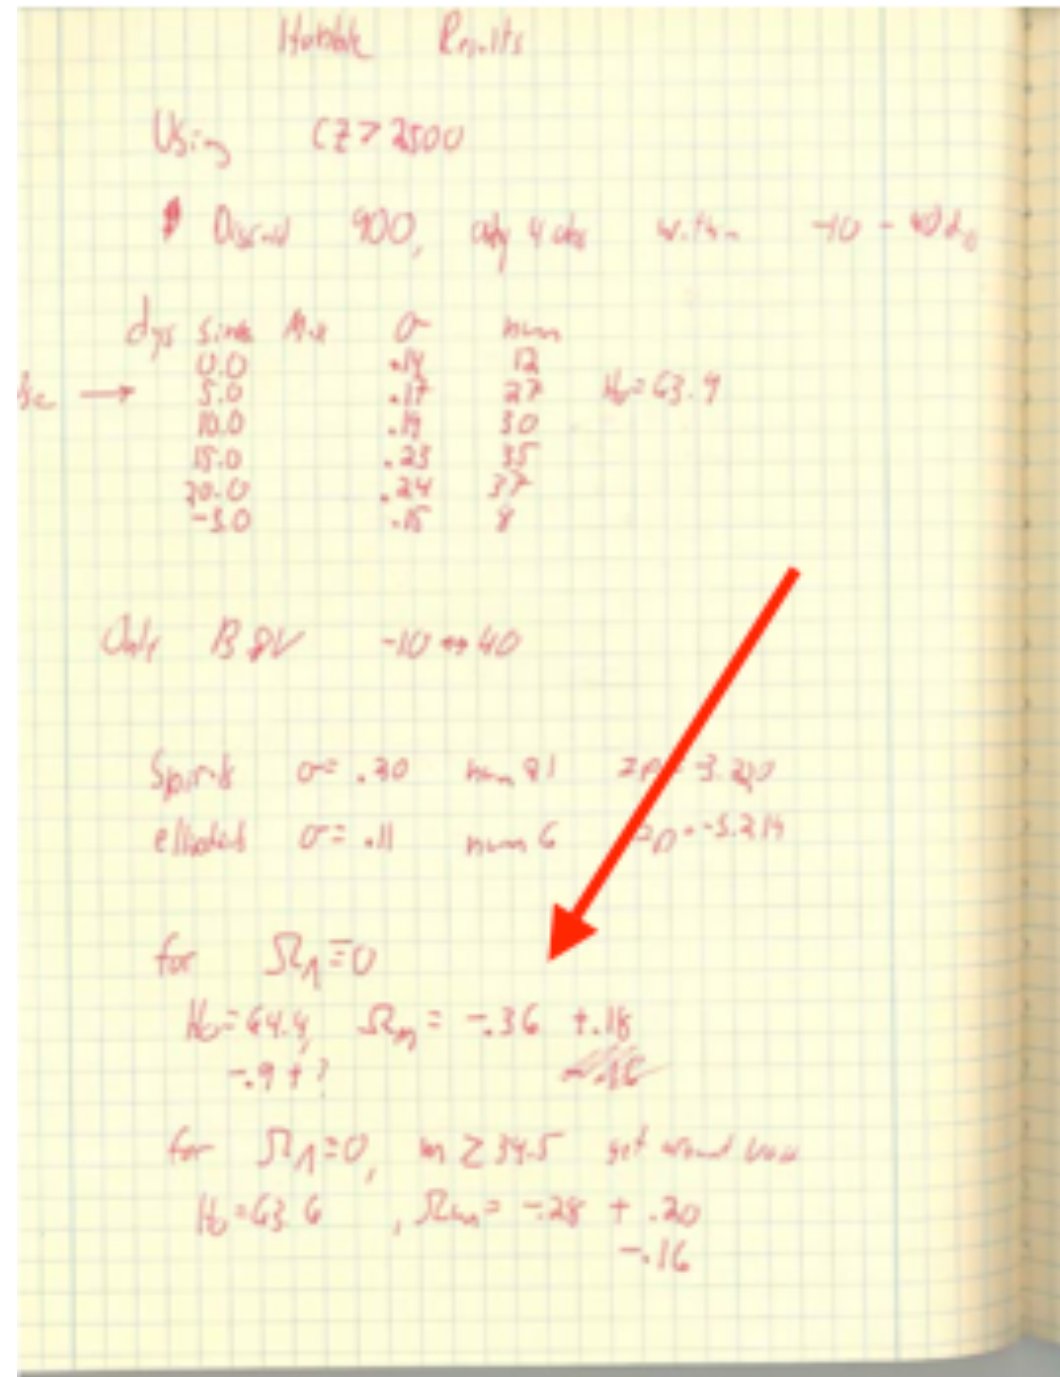 Hubble Results
Using CZ > 2500
Discard 900, only 4 obs within -10 - 40 d
dys since Max σ num
0.0 .14 12
→ 5.0 .17 27 H₀=63.9
10.0 .19 30
15.0 .23 35
20.0 .24 37
-5.0 .15 8
Only B & V -10 ↔ 40
Spirals σ= .20 num 21
ellipticals σ= .11 num 6
for Ω_Λ=0
H₀=64.4, Ω_m = -.36 +.18
-.9 + ?
for Ω_Λ=0, m ≥ 34.5 get
H₀=63.6 , Ω_m= -.28 + .20
-.16